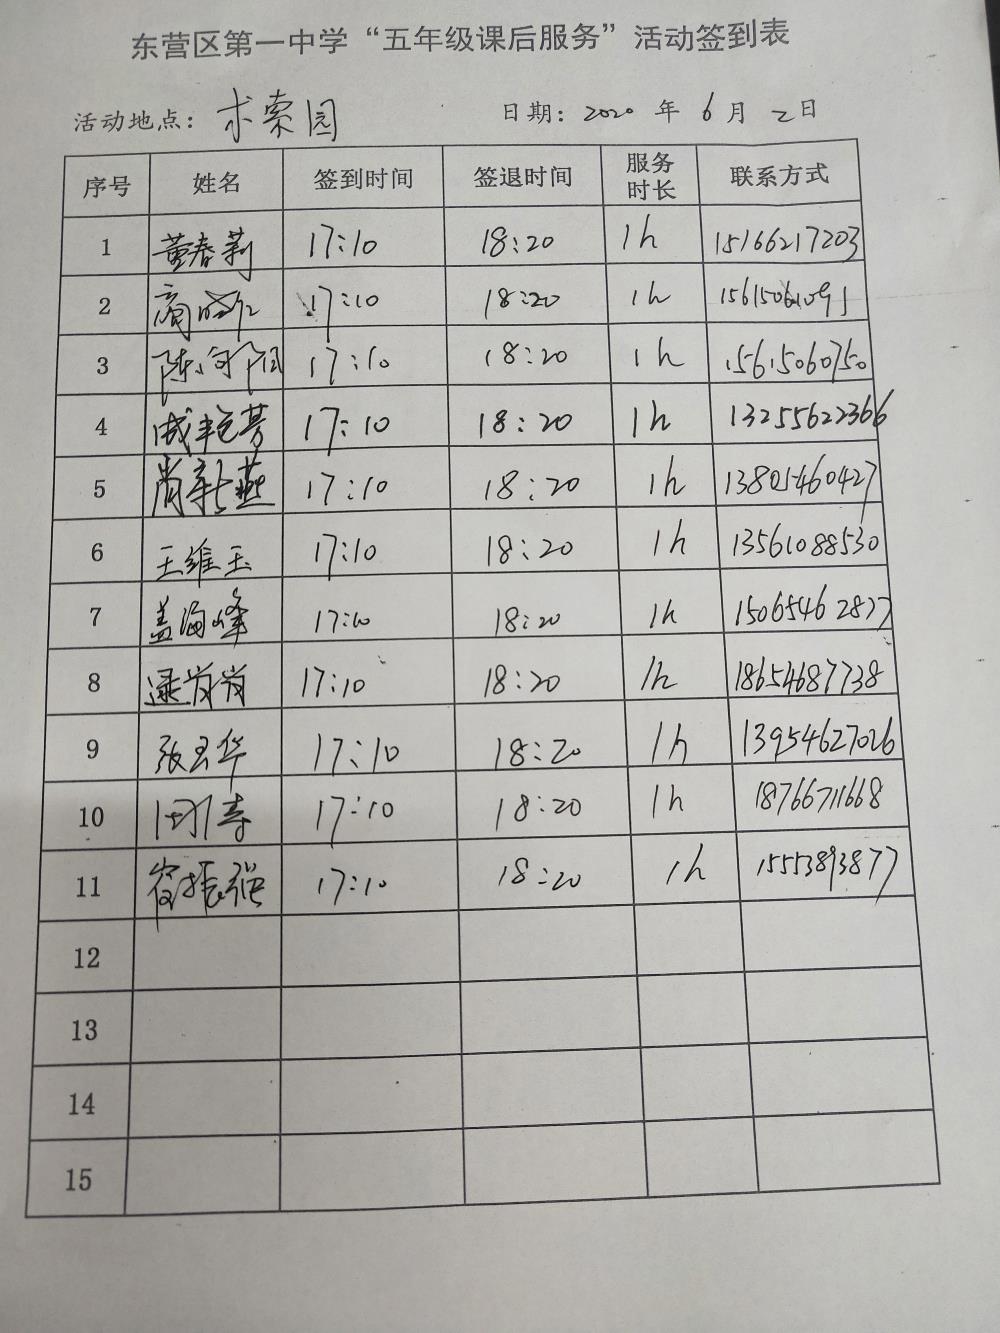 东营区第一中学“五年级课后服务”活动签到表
活动地点：求索园 日期：2020年6月2日
序号 姓名 签到时间 签退时间 服务时长 联系方式
1 董春莉 17:10 18:20 1h 15166217203
2 17:10 18:20 1h 15615061091
3 17:10 18:20 1h 15615060750
4 成艳芳 17:10 18:20 1h 13255622366
5 尚新燕 17:10 18:20 1h 13801460427
6 王维玉 17:10 18:20 1h 13561088530
7 盖海峰 17:10 18:20 1h 15065462877
8 逯岗岗 17:10 18:20 1h 18654687738
9 张玉华 17:10 18:20 1h 13954627026
10 17:10 18:20 1h 18766711668
11 振强 17:10 18:20 1h 15553893877
12
13
14
15